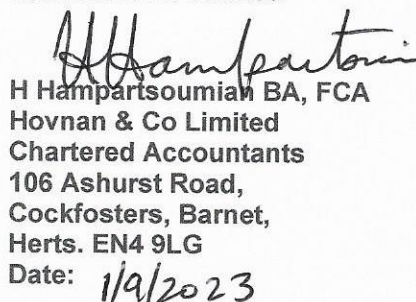 H Hampartsoumian
H Hampartsoumian BA, FCA
Hovnan & Co Limited
Chartered Accountants
106 Ashurst Road,
Cockfosters, Barnet,
Herts. EN4 9LG
Date: 1/9/2023